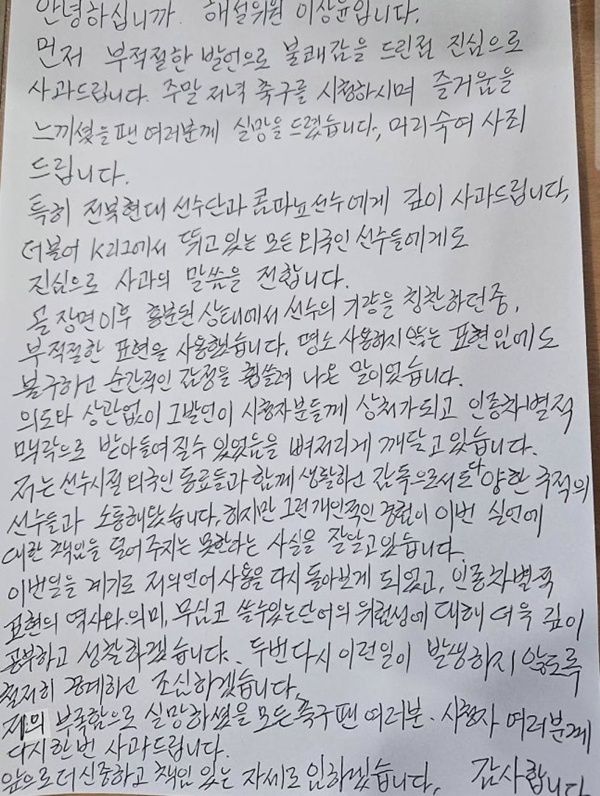 안녕하십니까. 해설위원 이상윤입니다.
먼저 부적절한 발언으로 불쾌감을 드린점 진심으로
사과드립니다. 주말 저녁 축구를 시청하시며 즐거움을
느끼셨을 팬 여러분께 실망을 드렸습니다, 머리숙여 사죄
드립니다.
특히 전북현대 선수단과 콤파뇨선수에게 깊이 사과드립니다,
더불어 K리그에서 뛰고있는 모든 외국인 선수들에게도
진심으로 사과의 말씀을 전합니다.
골 장면이후 흥분된 상태에서 선수의 기량을 칭찬하던중,
부적절한 표현을 사용했습니다. 평소 사용하지 않는 표현임에도
불구하고 순간적인 감정을 휩쓸려 나온 말이었습니다.
의도와 상관없이 그발언이 시청자분들께 상처가되고 인종차별적
맥락으로 받아들여질수 있었음을 뼈저리게 깨닫고 있습니다.
저는 선수시절 외국인 동료들과 함께 생활하고 감독으로서도 다양한 국적의
선수들과 소통해왔습니다, 하지만 그런개인적인 경험이 이번 실언에
대한 책임을 덜어주지는 못한다는 사실을 잘알고있습니다.
이번일을 계기로 저의언어 사용을 다시 돌아보게 되었고, 인종차별적
표현의 역사와 의미, 무심코 쓸수있는단어의 위험성에 대해 더욱 깊이
공부하고 성찰하겠습니다. 두번다시 이런일이 발생하지 않도록
철저히 경계하고 조심하겠습니다.
저의 부족함으로 실망하셨을 모든축구팬 여러분. 시청자 여러분께
다시한번 사과드립니다.
앞으로더신중하고 책임 있는 자세로 임하겠습니다, 감사합니다